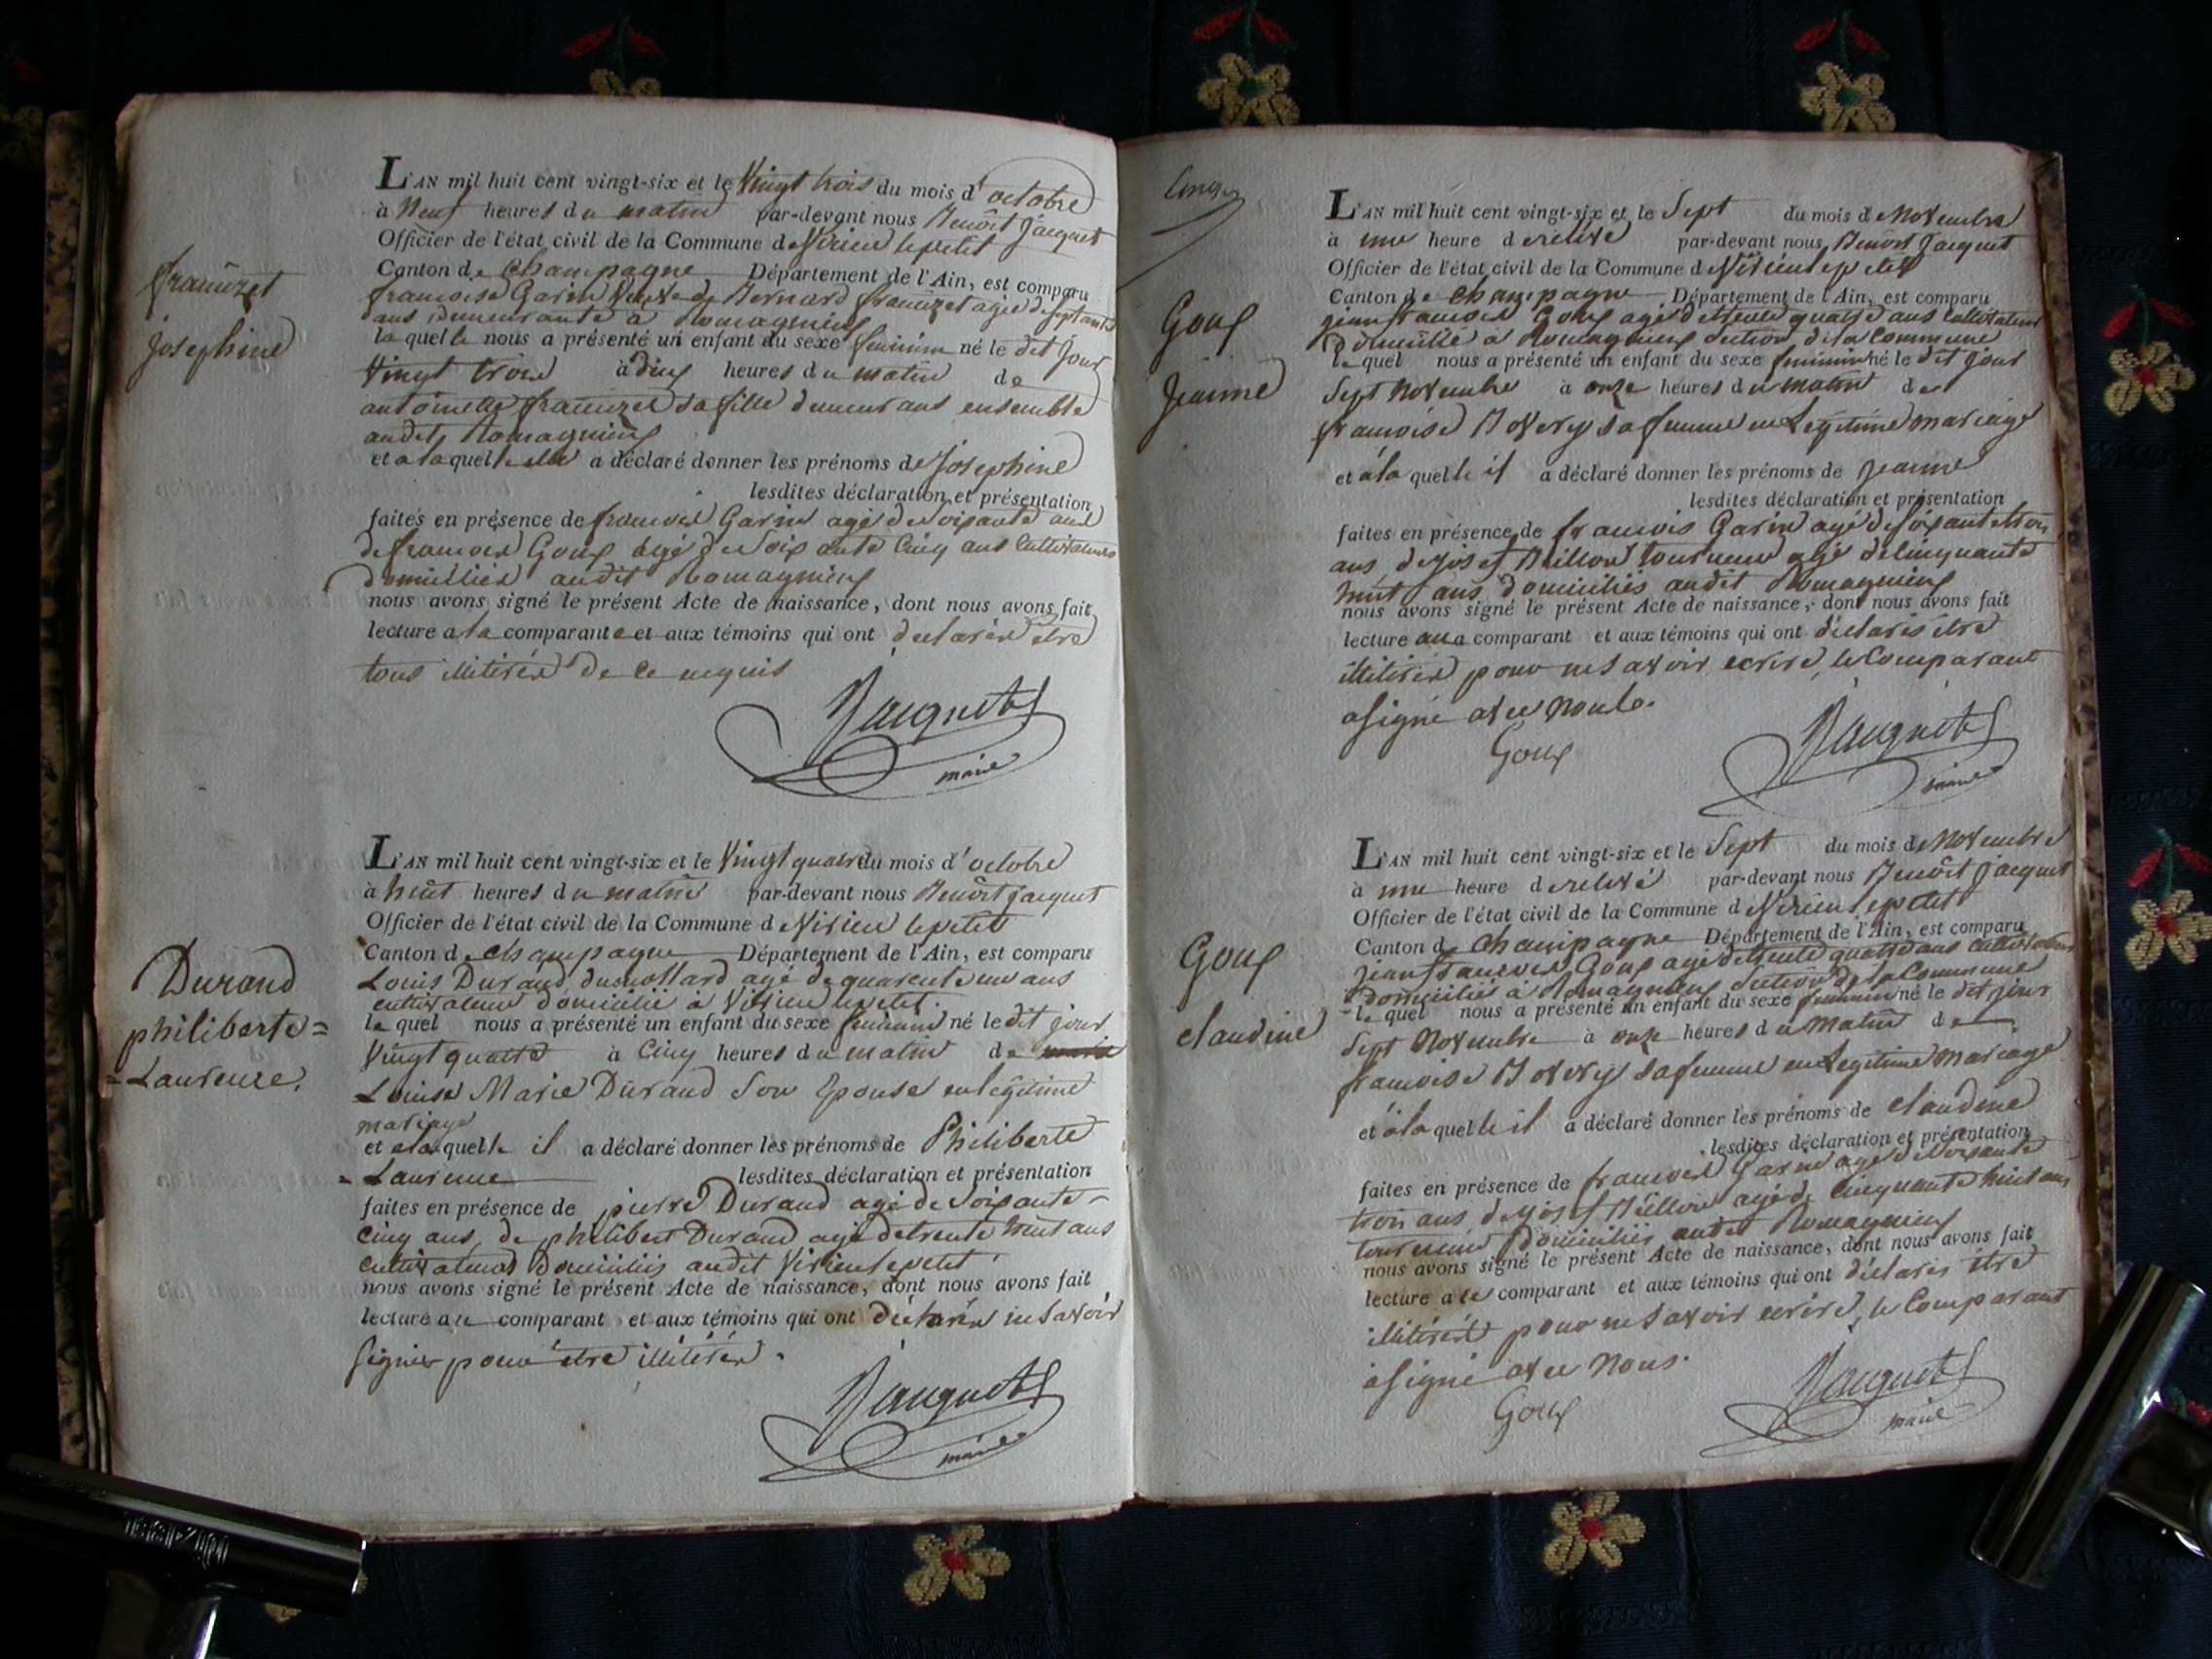 L'AN mil huit cent vingt-six et le Vingt trois du mois d'octobre
à Neuf heures du matin par-devant nous Benoît Jacquet
Officier de l'état civil de la Commune de Virieu lepetit
Canton de Champagne Département de l'Ain, est comparu
francoise Garin Veuve de Bernard agée de
ans demeurante à Romagnieu
laquelle nous a présenté un enfant du sexe feminin né le dit jour
Vingt trois à dix heures du matin de
antoinette sa fille demeurans ensemble
audit Romagnieu
et a laquelle elle a déclaré donner les prénoms de Josephine
lesdites déclaration et présentation
faites en présence de francois Garin agé de Soixante ans
de francois Goux agé de Soixante Cinq ans Cultivateurs
domicilies audit Romagnieu
nous avons signé le présent Acte de naissance, dont nous avons fait
lecture a la comparante et aux témoins qui ont declarés etre
tous illiterés de ce requis
Jacquet
maire
josephine
L'AN mil huit cent vingt-six et le Vingt quatre du mois d'octobre
à huit heures du matin par-devant nous Benoît Jacquet
Officier de l'état civil de la Commune de Virieu lepetit
Canton de Champagne Département de l'Ain, est comparu
Louis Durand agé de quarente un ans
cultivateur domicilié à Virieu lepetit
lequel nous a présenté un enfant du sexe feminin né le dit jour
Vingt quatre à Cinq heures du matin de
Louise Marie Durand Son Epouse en legitime
mariage
et a laquelle il a déclaré donner les prénoms de Philiberte
= Laurence lesdites déclaration et présentation
faites en présence de pierre Durand agé de Soixante
cinq ans, de philibert Durand agé de trente huit ans
cultivateurs Domiciliés audit Virieu lepetit
nous avons signé le présent Acte de naissance, dont nous avons fait
lecture au comparant et aux témoins qui ont déclarés ne Savoir
signer pour être illitérés.
Jacquet
maire
Durand
philiberte =
= Laurence.
L'AN mil huit cent vingt-six et le Sept du mois de Novembre
à une heure de relevé par-devant nous Benoît Jacquet
Officier de l'état civil de la Commune de Virieu lepetit
Canton de Champagne Département de l'Ain, est comparu
jean francois Goux agé de trente quatre ans Cultivateur
Domicilié à Romagnieu Section de la Commune
lequel nous a présenté un enfant du sexe feminin né le dit jour
Sept Novembre à onze heures du matin de
francoise sa femme en Legitime mariage
et à la quelle il a déclaré donner les prénoms de jeanne
lesdites déclaration et présentation
faites en présence de francois Garin agé de soixante trois
ans de Josef tourneur agé de cinquante
huit ans domiciliés audit Romagnieu
nous avons signé le présent Acte de naissance, dont nous avons fait
lecture au comparant et aux témoins qui ont déclarés être
illiterés pour ne Savoir ecrire, le Comparant
a signé avec nous.
Goux
Jacquet
maire
Goux
jeanne
L'AN mil huit cent vingt-six et le Sept du mois de Novembre
à une heure de relevé par-devant nous Benoît Jacquet
Officier de l'état civil de la Commune de Virieu lepetit
Canton de Champagne Département de l'Ain, est comparu
jean francois Goux agé de trente quatre ans cultivateur
domicilié à Romagnieu Section de la Commune
lequel nous a présenté un enfant du sexe feminin né le dit jour
Sept Novembre à onze heures du Matin de
francoise sa femme en Legitime mariage
et à la quelle il a déclaré donner les prénoms de claudine
lesdites déclaration et présentation
faites en présence de francois Garin agé de Soixante
trois ans de Josef agé de Cinquante huit ans
tourneur Domiciliés audit Romagnieu
nous avons signé le présent Acte de naissance, dont nous avons fait
lecture a le comparant et aux témoins qui ont déclarés être
illitérés pour ne Savoir ecrire, le Comparant
a signé avec Nous.
Goux
Jacquet
maire
Goux
claudine